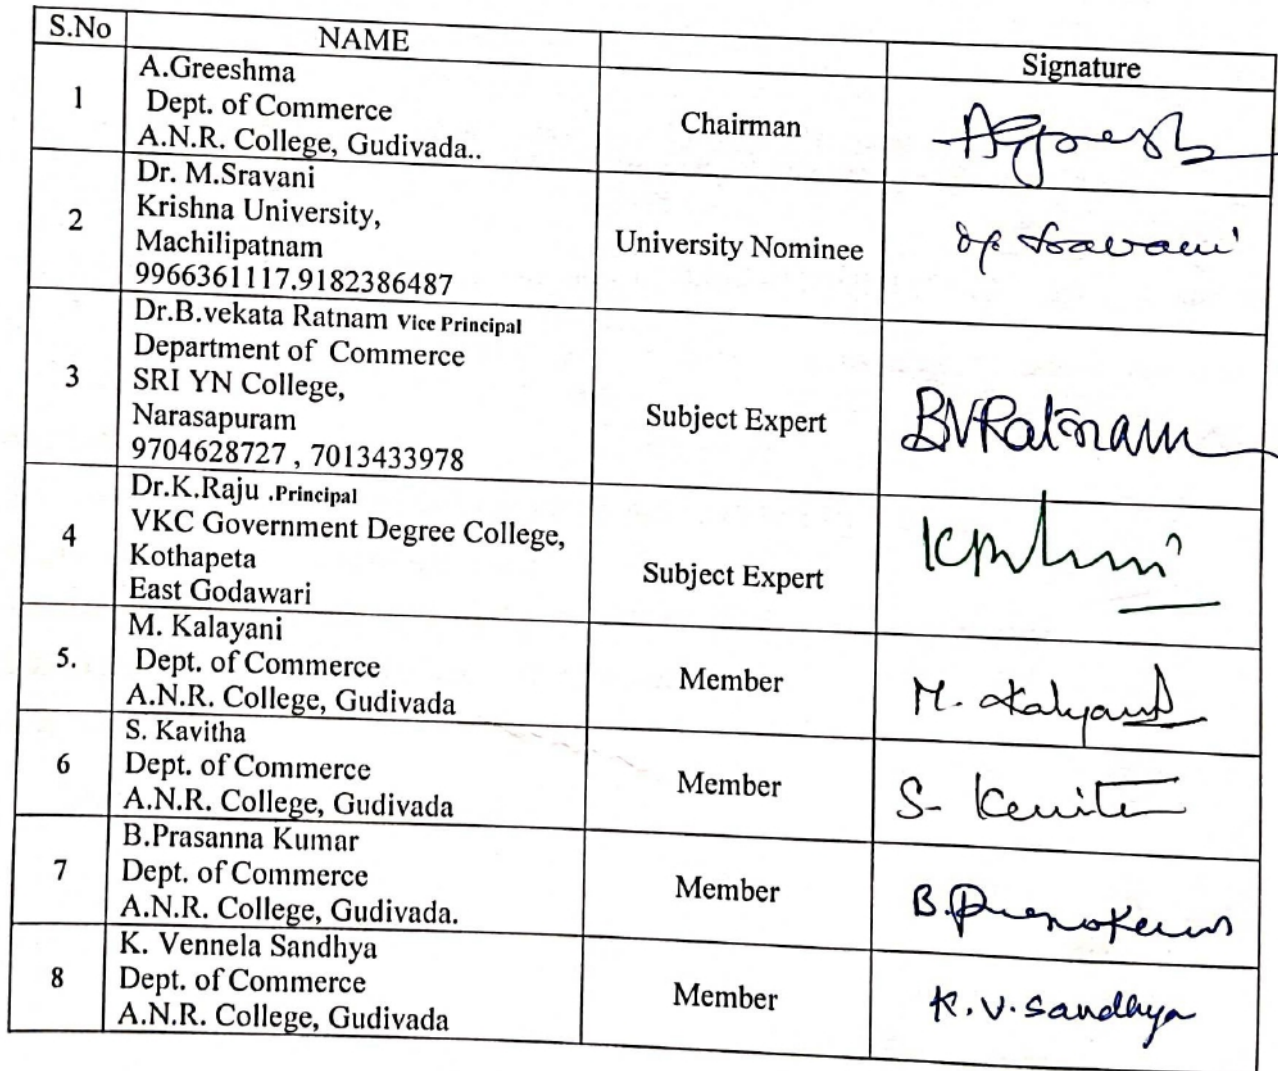 S.No NAME Signature
1 A.Greeshma
Dept. of Commerce
A.N.R. College, Gudivada..
Chairman
2 Dr. M.Sravani
Krishna University,
Machilipatnam
9966361117.9182386487
University Nominee
3 Dr.B.vekata Ratnam Vice Principal
Department of Commerce
SRI YN College,
Narasapuram
9704628727 , 7013433978
Subject Expert
BVRatnam
4 Dr.K.Raju .Principal
VKC Government Degree College,
Kothapeta
East Godawari
Subject Expert
5. M. Kalayani
Dept. of Commerce
A.N.R. College, Gudivada
Member
M. Kalyani
6 S. Kavitha
Dept. of Commerce
A.N.R. College, Gudivada
Member
S-
7 B.Prasanna Kumar
Dept. of Commerce
A.N.R. College, Gudivada.
Member
B.
8 K. Vennela Sandhya
Dept. of Commerce
A.N.R. College, Gudivada
Member
K.V.Sandhya